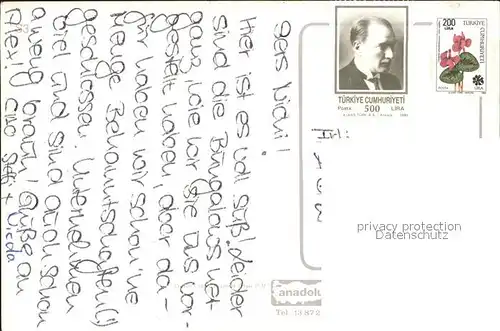 Geis Nidri!
Hier ist es voll süß! Leider
sind die Bungalows net
ganz wie wir sie uns vor-
gestellt haben, aber da-
für haben wir schon 'ne
Menge Bekanntschaften (!)
geschlossen. Unternehmen
viel und sind auch schon
braun! Grüße an
Alex! Ciao
TÜRKİYE CUMHURİYETİ
Posta 500 LİRA
200
LİRA
TÜRKİYE
CUMHURİYETİ
POSTA
privacy protection
Datenschutz
anadolu
Tel. 13 872